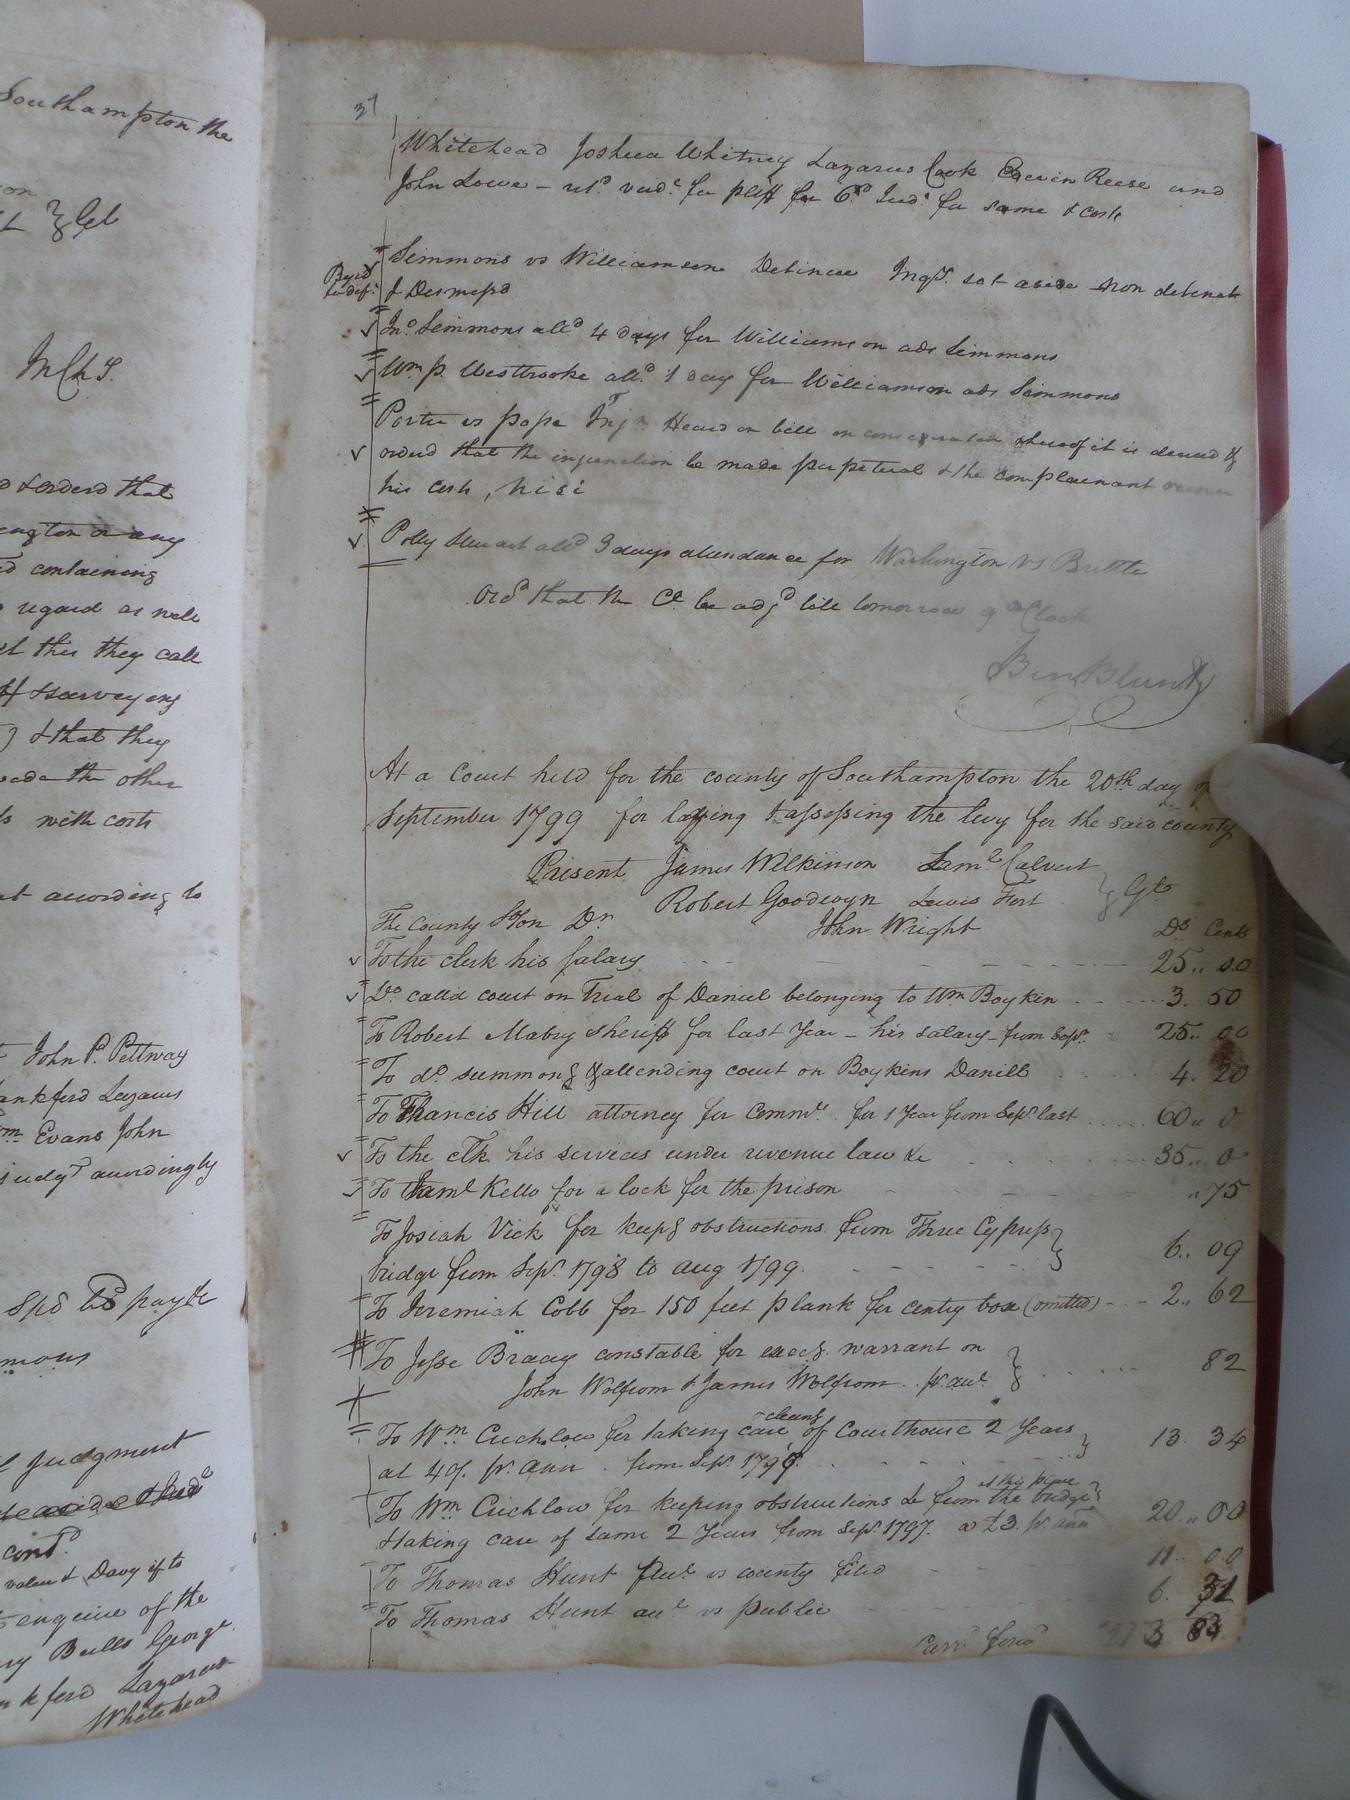 Southampton the
on
} Gt
d & orderd that
ington or any
containing
regard as well
this they call
& surveying
& that they
the other
with costs
according to
John P. Pettway
ankford Lazarus
Wm Evans John
judgt accordingly
pay the
mous
judgment
cond.
value & Davy if to
enquire of the
Bulls George
kford Lazarus
Whitehead
37
Whitehead Joshua Whitney Lazarus Cook Reese and
John Lowe – retd verdt for pltff for 6d Judt for same & costs
Simmons vs Williamson Detinue Inqy. set aside non detinet
Jno Simmons alld 4 days for Williamson ads Simmons
Wm p. Westbrooke alld 1 day for Williamson ads Simmons
Porter vs pope Injn Heard on bill on consideration thereof it is decreed &
orderd that the injunction be made perpetual & the complainant recover
his costs, nisi
Polly Stewart alld 3 days attendance for Washington vs Brittle
Ordd that the Ct be adjd till tomorrow 9 oClock
Ben Blunt
At a Court held for the county of Southampton the 20th day of
September 1799 for laying & assessing the levy for the said county
Present James Wilkinson Saml Calvert
Robert Goodwyn Lewis Fort } Gts
The County Shton Dr John Wright Ds Cents
To the clerk his salary 25.. 00
Do calld court on trial of Daniel belonging to Wm Boykin 3. 50
To Robert Mabry sheriff for last Year – his salary – from Sepr. 25.. 00
To do summong & attending court on Boykins Daniel 4. 20
To Francis Hill attorney for Commth. for 1 Year from Sepr last 60.. 0
To the Clk his services under revenue law &c 35.. 0
To Saml Kello for a lock for the prison .. 75
To Josiah Vick for keepg obstructions from Three Cypress }
bridge from Sepr. 1798 to aug 1799. 6.. 09
To Jeremiah Cobb for 150 feet plank for centry box (omitted) 2.. 62
To Jesse Bracy constable for execg. warrant on }
John Wolfrom & James Wolfrom. pr. acct. 82
cleang
To Wm Crichlow for taking care of Courthouse 2 Years }
at 40/. pr. ann. from Sepr. 179 13. 34
at this place
To Wm Crichlow for keeping obstructions &c from the bridge }
& taking care of same 2 Years from Sepr. 1797. a £3. pr. ann 20.. 00
To Thomas Hunt vs county filed 11.. 00
To Thomas Hunt acct vs public 6. 51
Carrd forwd 3 83